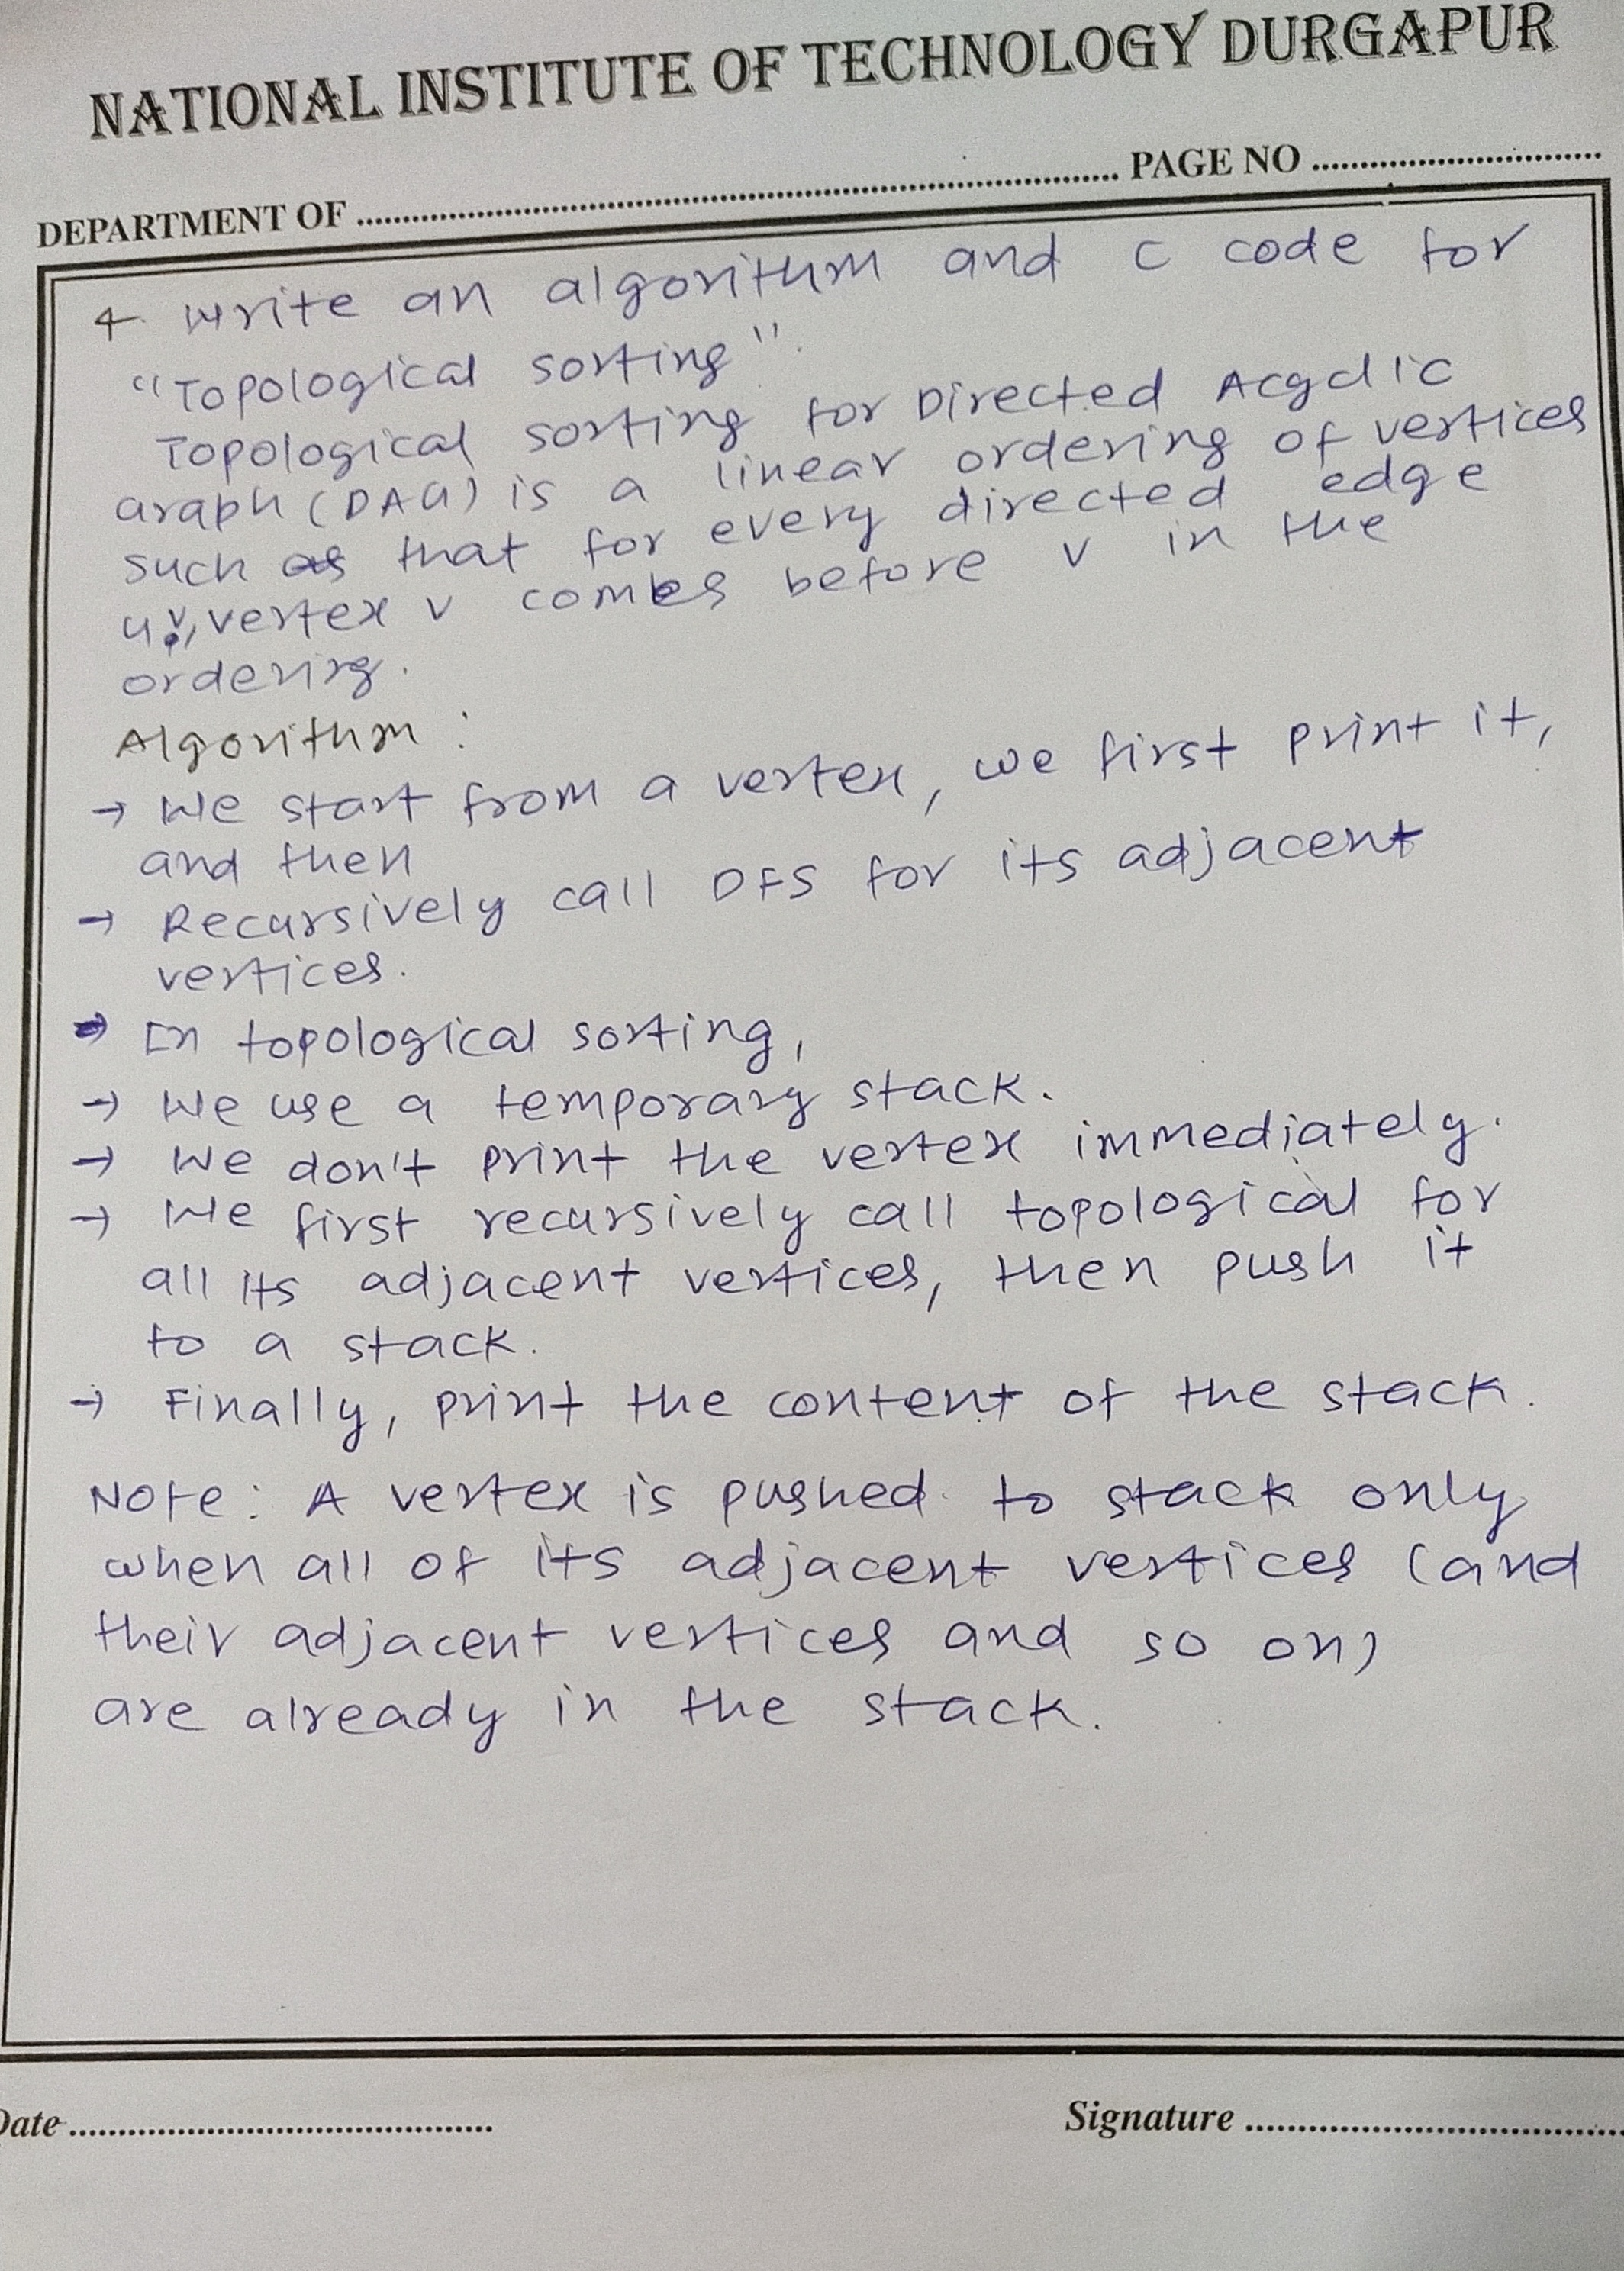 NATIONAL INSTITUTE OF TECHNOLOGY DURGAPUR
DEPARTMENT OF ........................ PAGE NO ............
4. Write an algorithm and C code for
"Topological sorting".
Topological sorting for Directed Acyclic
Graph (DAG) is a linear ordering of vertices
such that for every directed edge
uv, vertex v comes before v in the
ordering.
Algorithm :
→ We start from a vertex, we first print it,
and then
→ Recursively call DFS for its adjacent
vertices.
→ In topological sorting,
→ We use a temporary stack.
→ We don't print the vertex immediately.
→ We first recursively call topological for
all its adjacent vertices, then push it
to a stack.
→ Finally, print the content of the stack.
Note: A vertex is pushed to stack only
when all of its adjacent vertices (and
their adjacent vertices and so on)
are already in the stack.
Date ........................ Signature ........................